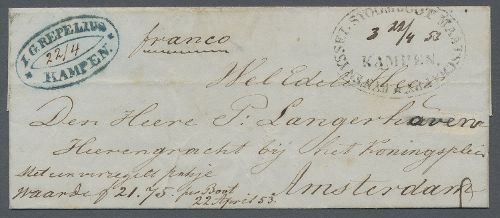 I. G. REPELIUS
22/4
KAMPEN.
franco
IJSSEL STOOMBOOT MAATSCHAPPIJ
3 22/4 53
KAMPEN.
Wel Edele
Den Heere P. Langerhaven
Heerengracht bij het Koningsplein
Amsterdam
Met een verzegeld pakje
Waarde ƒ 21.75 per Boot
22 April 53.